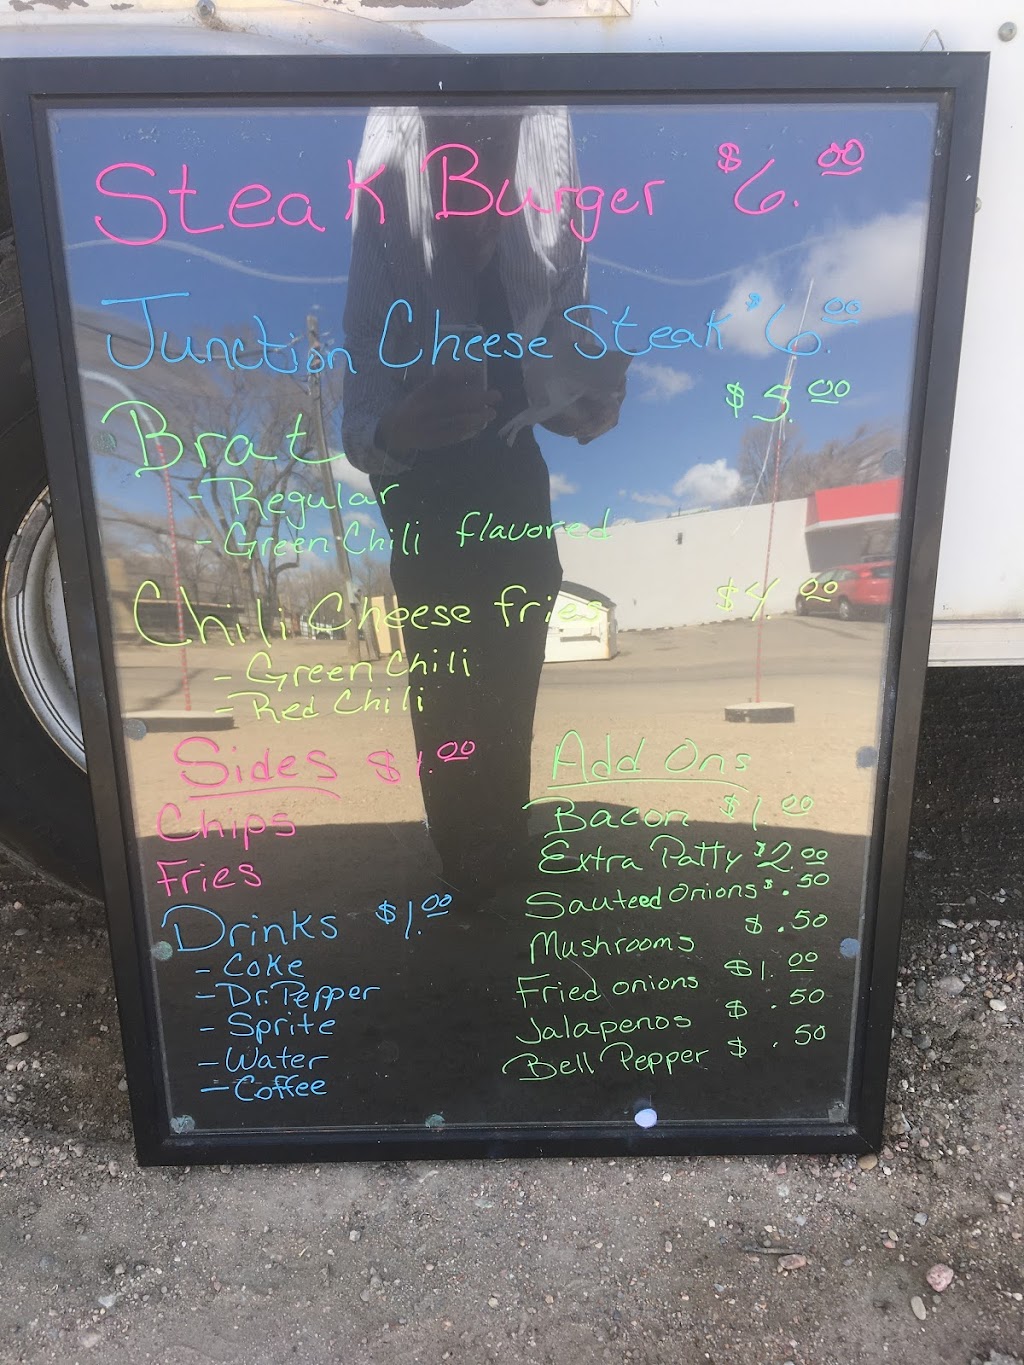 Steak Burger $6.00
Junction Cheese Steak $6.00
Brat $5.00
- Regular
- Green Chili flavored
Chili Cheese fries $4.00
- Green Chili
- Red Chili
Sides $1.00
Chips
Fries
Drinks $1.00
- Coke
- Dr. Pepper
- Sprite
- Water
- Coffee
Add Ons
Bacon $1.00
Extra Patty $2.00
Sauteed Onions $.50
Mushrooms $.50
Fried onions $1.00
Jalapenos $.50
Bell Pepper $.50